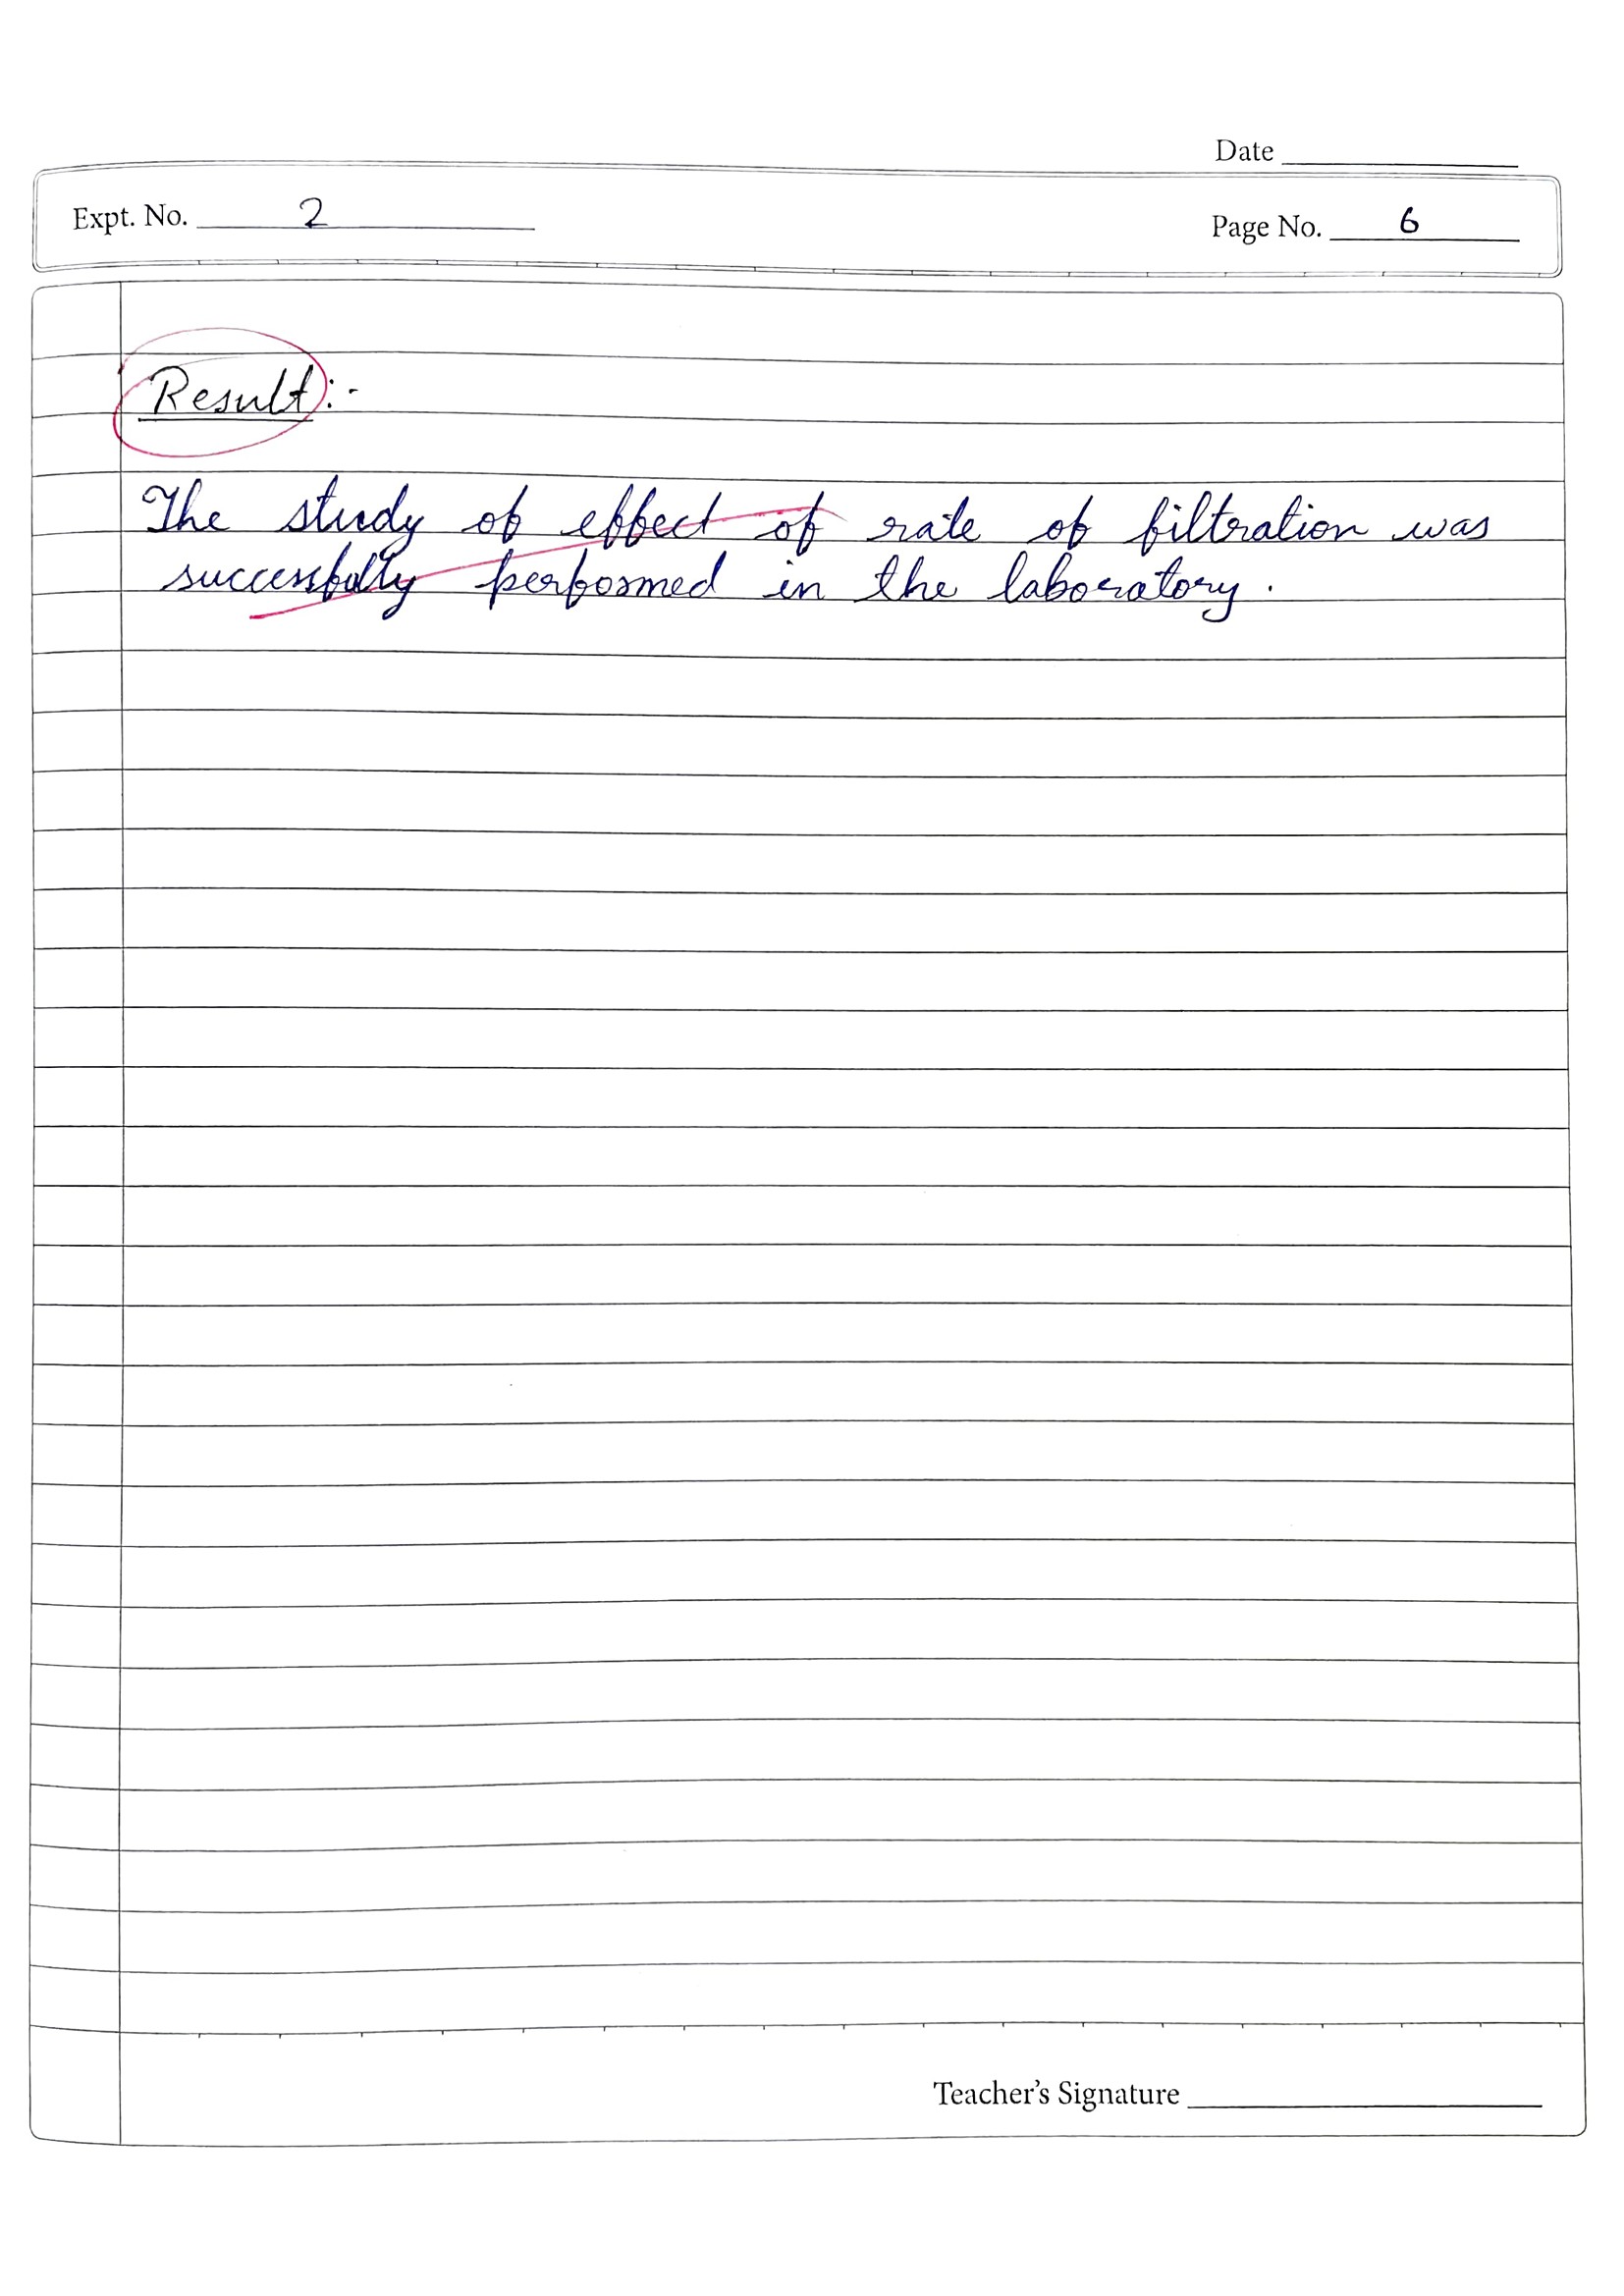 Date
Expt. No. 2
Page No. 6
Result:-
The study of effect of rate of filtration was
successfully performed in the laboratory.
Teacher's Signature